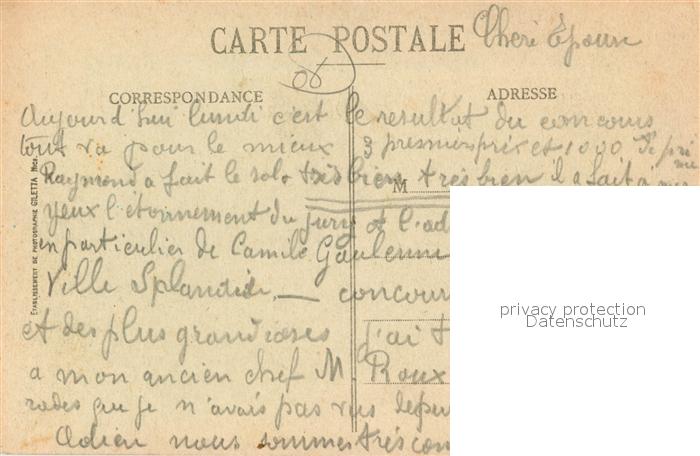 CARTE POSTALE Cheri Epoux
06
CORRESPONDANCE ADRESSE
Aujourd'hui lundi c'est le resultat du concours
tout va pour le mieux 3 premiers prix et 1000
Raymond a fait le solo très bien M très bien il a fait à
yeux l'etonnement du jury et l'ad
en particulier de Camile
Ville Splandide — concour
et des plus grandioses j'ai t
a mon ancien chef M. Roux
rades que je n'avais pas vus depu
Adieu nous sommes très con
ETABLISSEMENT DE PHOTOGRAPHIE GILETTA NICE
privacy protection
Datenschutz